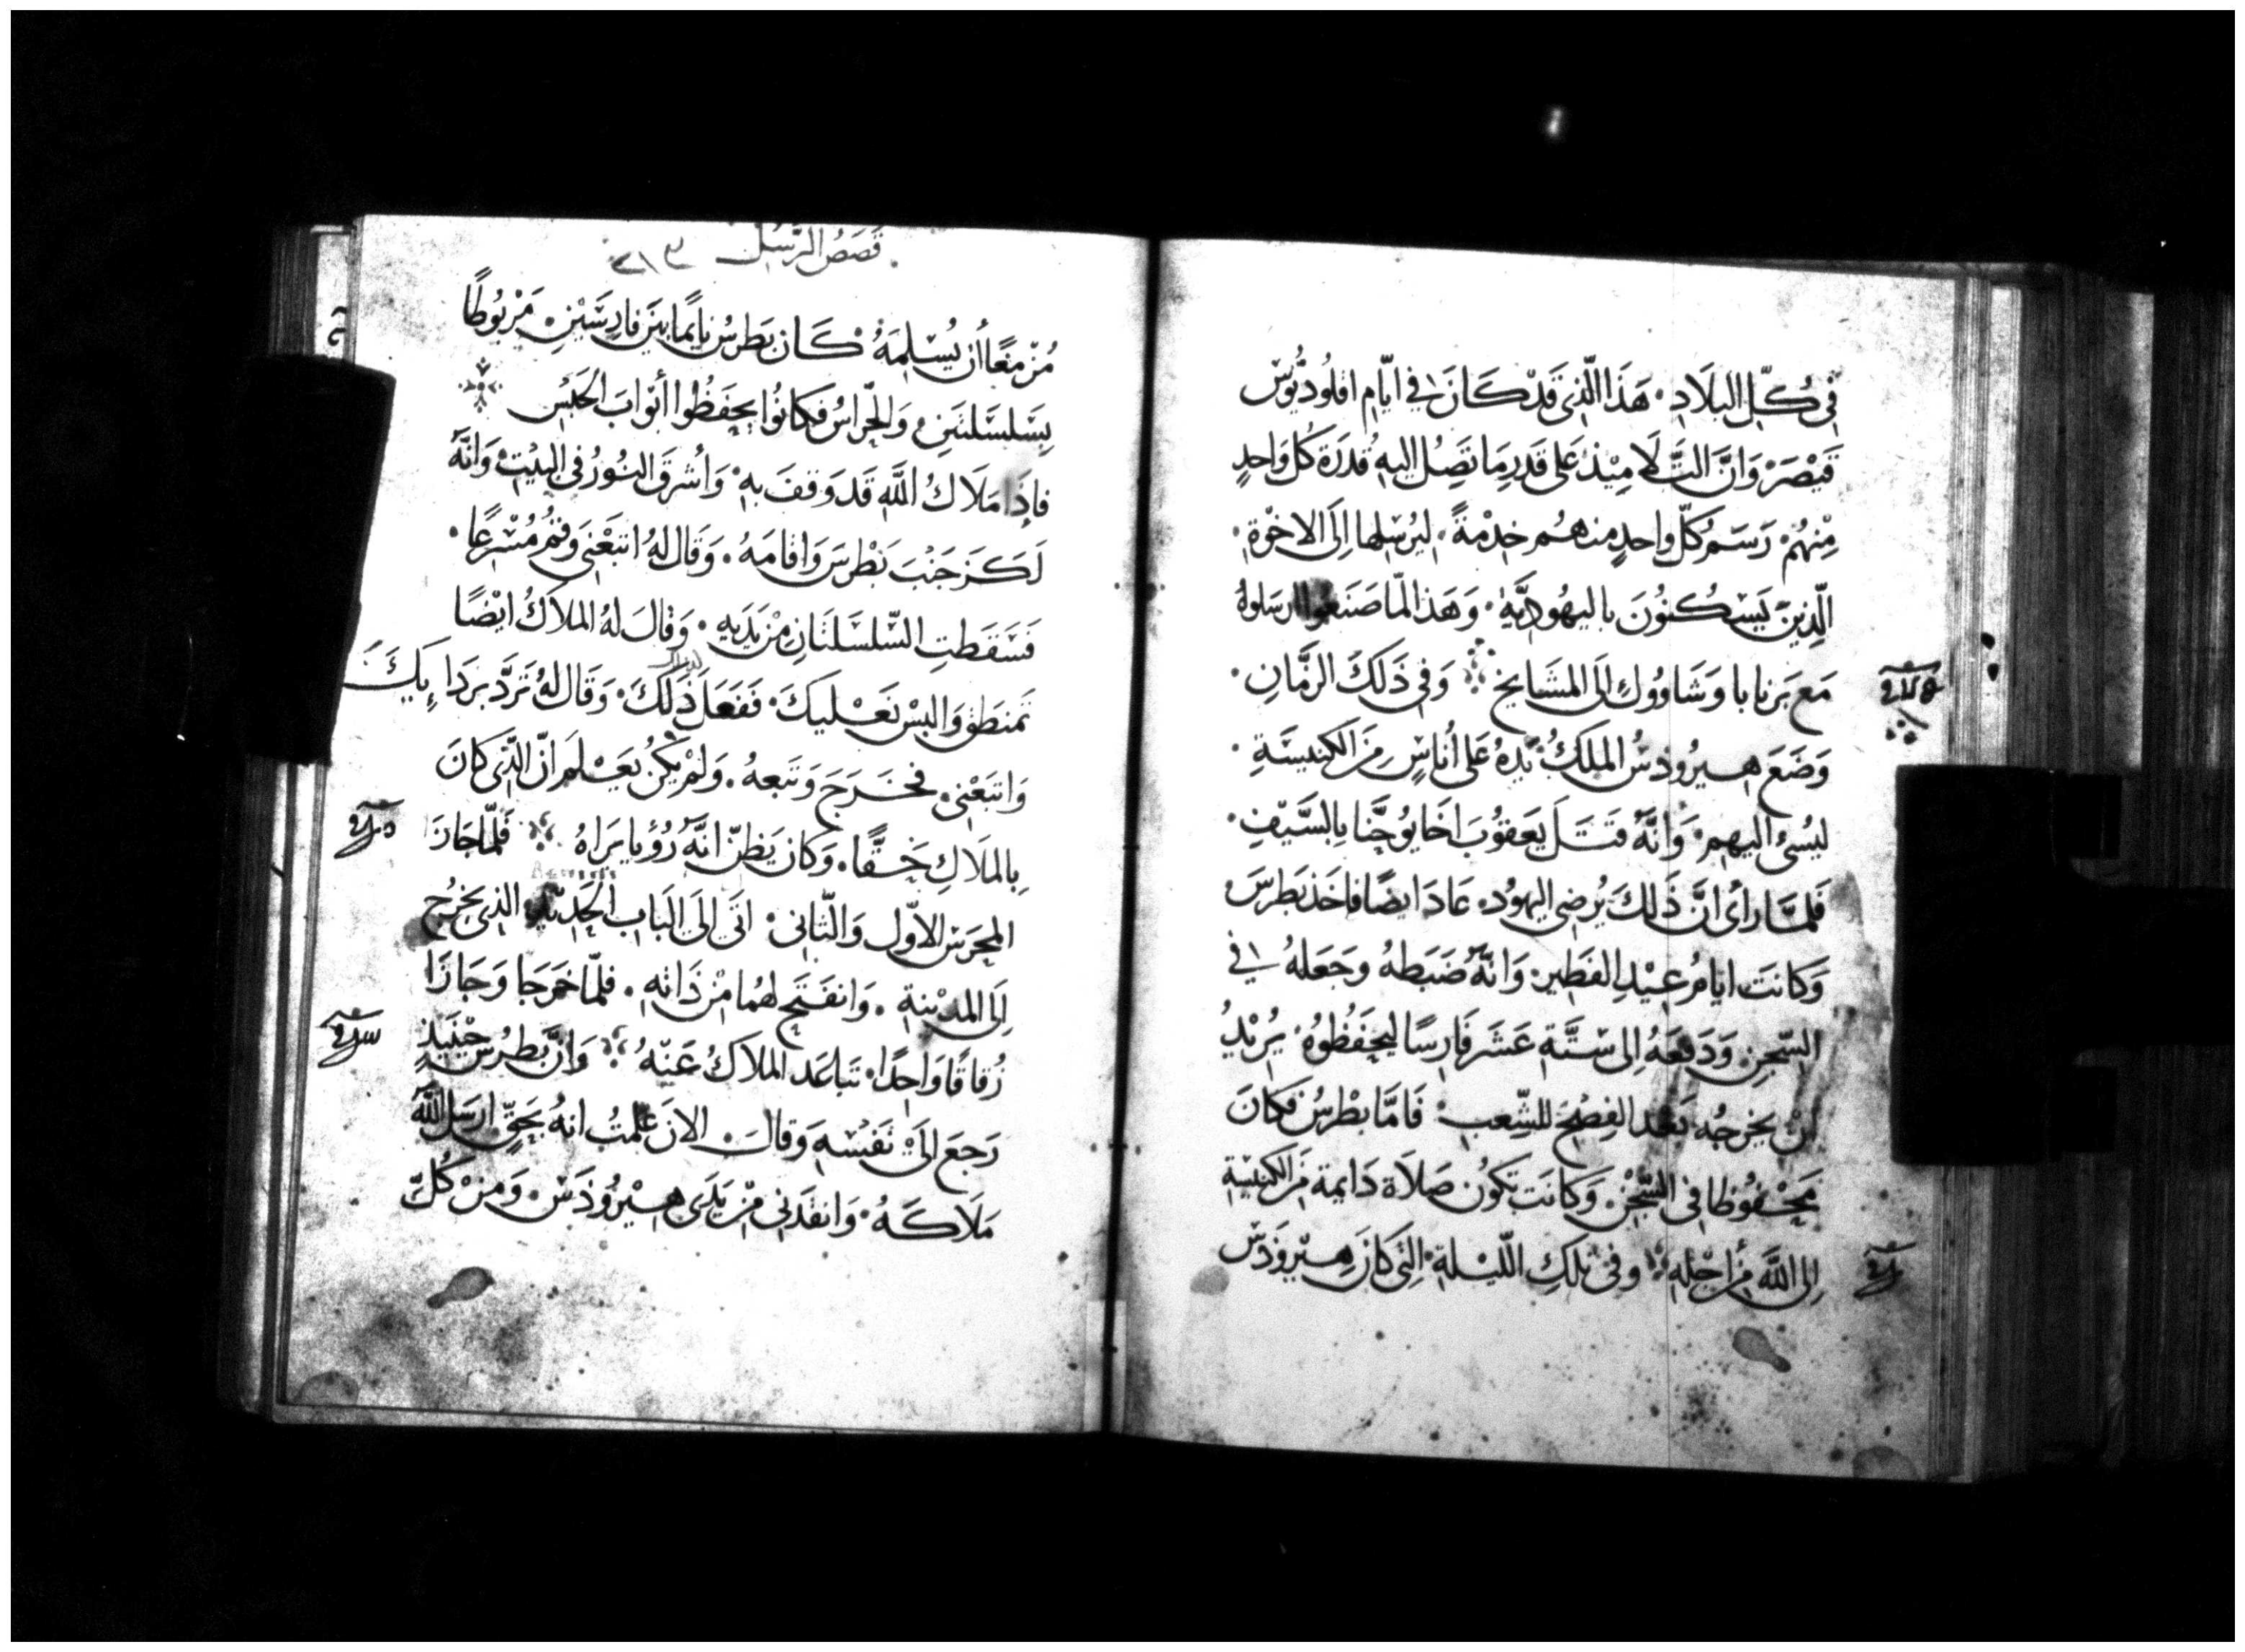 في كُلّ البلَادِ. هَذَا الّذِي قَدْ كَانَ في ايّامِ اقلُوديُوسْ
قَيْصَرْ وَانَّ التَّلَامِيْذ عَلى قَدرِ مَا تَصِل اليهِ قُدرَة كُل وَاحدٍ
مِنْهُمْ. رَسَمَ كلّ واحدٍ مِنهُم خِدْمةً. ليُرْسِلها اِلَى الاخْوَة.
الّذِينَ يَسْكُنُونَ باليهُودِيَّة. وَهَذا لمّا صَنَعُوا ارسَلوهُ
مَع بَرنابا وَشَاوُول اِلَى المشَايخ وَفي ذَلكَ الزمَّانِ.
وَضَعَ هِيرُودسُ الملكُ يَدهُ عَلى أُناسٍ مِنَ الكَنيسَةِ.
ليُسئ اليهم. وَانَّهُ قَتَلَ يَعقوُبَ اخَا يُوحَّنا بِالسَّيفِ.
فَلمَّا رأى انَّ ذَلكَ يُرضى اليهُود. عَادَ ايضًا فاخَذ بَطرسَ
وَكانَت ايامُ عيْدِ الفَطِير. وَانَّهُ ضَبَطهُ وَجَعَلهُ في
السّجنِ وَدَفعَهُ اِلى ستَّة عَشَر فَارِسًا ليحَفظوُهُ. يُريْدُ
انْ يخرجُه بَعْد الفِصْحَ للشّعبِ. فَامَّا بطْرسُ فكَانَ
محْفُوظا في السّجْن. وَكانَت تَكوُن صَلاَة دَايمة مِنَ الكَنيسةِ
اِلى اللَّه مِن اجْلِه وفي تلكَ اللّيلة. التي كانَ هِيرُودسْ
قَصَصُ الرّسُل
مُزْمعًا أن يُسْلِمَهُ كَان بَطرسُ نايمًا بيَن فارسَيْنِ. مَرْبُوطًا
بِسَلسَلتَينِ وَالحّراسُ فكانوُا يحفَظُوا أبْوَابَ الحَبْس
فاِذَا مَلَاكُ اللَّه قَد وَقفَ بهِ وَأشرقَ النوُرُ في البيْتِ وَانّهُ
لَكَزَ جَنْبَ بَطْرسَ وَاقامَهُ. وَقَال لهُ اتبَعْني وَقُمْ مُسْرعًا.
فَسَقطتِ السّلسَلتَانِ مِنْ يَدَيهِ. وَقالَ لهُ الملاكُ ايْضًا
تمنطَق وَالبسْ نَعْليكَ. فَفَعَلَ ذَلكَ. وَقَال لهُ تَردَّ بردَايِكَ
وَاتبَعْني. فخَرَجَ وَتَبعهُ. وَلم يكُنْ يَعْلم انّ الّذى كانَ
بِالملَاكِ حَقًّا. وَكان يَظنّ انّهُ رُؤيا يراهُ فَلمّا جَازَا
المحرَس الاوّل وَالثّانى. اتَى اِلَى البَاب الحَديْد الذى يخرُج
اِلَى المدْينةِ. وَانفَتَح لهُما مِنْ ذَاتهِ. فلمّا خَرجَا وَجَازَا
زُقاقًا وَاحدًا. تَباعَد الملاكُ عَنْهُ وَانّ بطرُس حينَيذٍ
رَجعَ اِلَى نفسهِ وَقالَ الانَ علمتُ انهُ بحَقّ ارسَل اللَّه
مَلَاكَهُ. وَانقَذَني مِنْ يَدَى هِيْرُودَسْ. وَمِنْ كُلّ